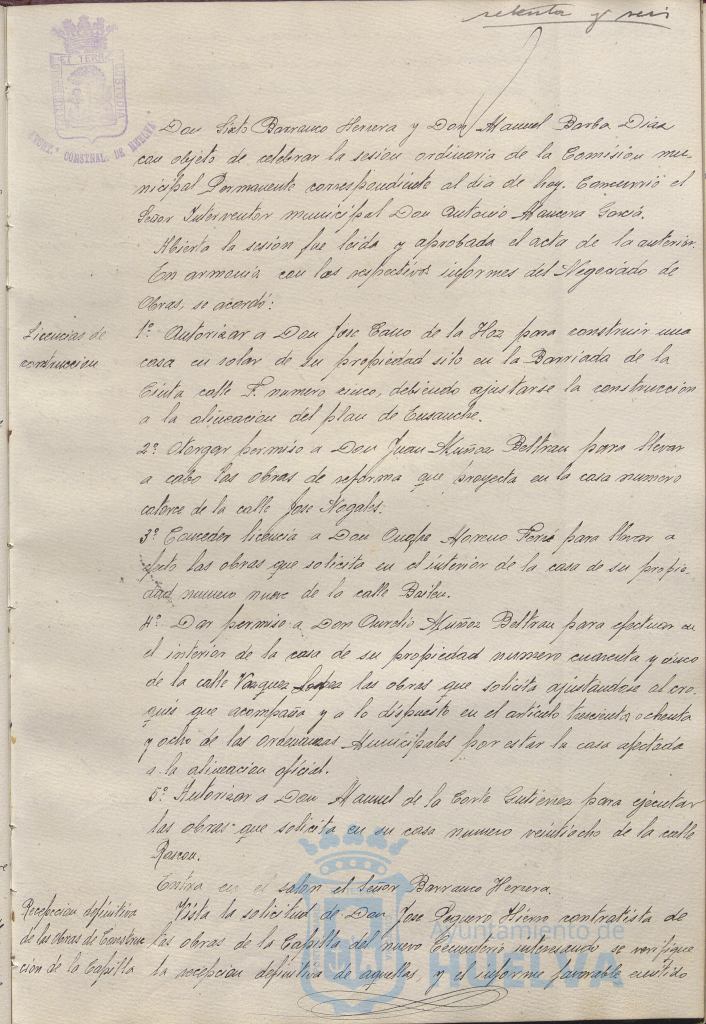 setenta y seis
AYUNT.º CONSTNAL. DE HUELVA
Don Sixto Barranco Herrera y Don Manuel Barba Diaz
con objeto de celebrar la sesion ordinaria de la Comisión mu-
nicipal Permanente correspondiente al dia de hoy. Concurrió el
Señor Interventor municipal Don Antonio Mancera Garciá.
Abierta la sesión fue leida y aprobada el acta de la anterior.
En armonia con los respectivos informes del Negociado de
Obras, se acordó:
Licencias de
construccion
1º Autorizar a Don Jose Cano de la Hoz para construir una
casa en solar de su propiedad sito en la Barriada de la
Cinta calle F. numero cinco, debiendo ajustarse la construccion
a la alineacion del plan de Ensanche.
2º Otorgar permiso a Don Juan Muñoz Beltran para llevar
a cabo las obras de reforma que proyecta en la casa numero
catorce de la calle Jose Nogales.
3º Conceder licencia a Don Onofre Moreno para llevar a
efecto las obras que solicita en el interior de la casa de su propie-
dad numero nueve de la calle Bailen.
4º Dar permiso a Don Aurelio Muñoz Beltran para efectuar en
el interior de la casa de su propiedad numero cuarenta y cinco
de la calle Vazquez Lopez las obras que solicita ajustandose al cro-
quis que acompaña y a lo dispuesto en el artículo trescientos ochenta
y ocho de las Ordenanzas Municipales por estar la casa afectada
a la alineacion oficial.
5º Autorizar a Don Manuel de la Corte Gutierrez para ejecutar
las obras que solicita en su casa numero veintiocho de la calle
Rascon.
Entra en el salon el Señor Barranco Herrera.
Recepcion definitiva
de las obras de Construc
ción de la Capilla
Vista la solicitud de Don Jose Peguero Hierro contratista de
las obras de la Capilla del nuevo Cementerio interesando se verifique
la recepcion definitiva de aquellas, y el informe favorable emitido
Ayuntamiento de
HUELVA